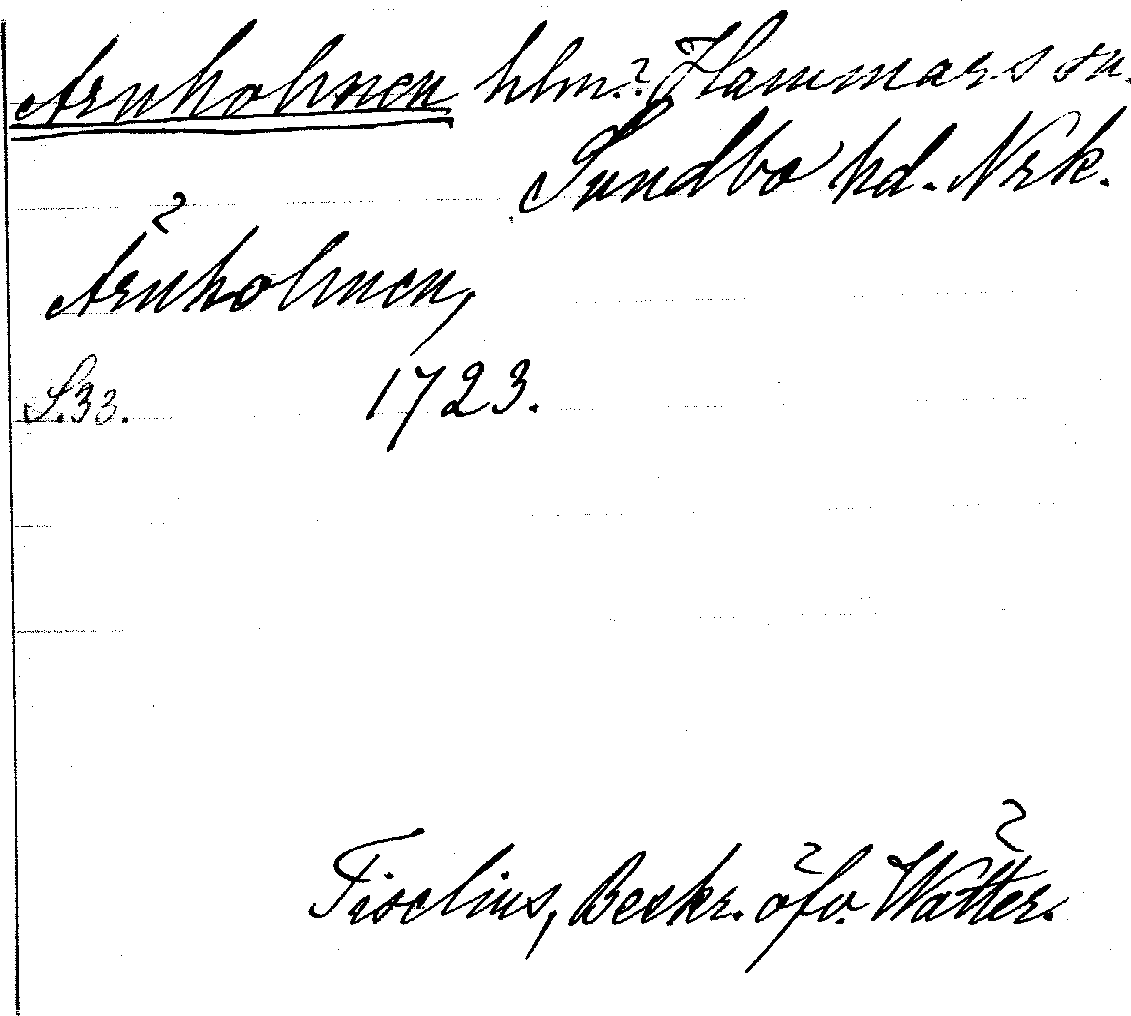 Ärnholmen hlm? Hammars sn.
Sundbo hd. Nrk.
Ärnholmen,
S.33. 1723.
Tiselius, Beskr. öfv. Wätter.